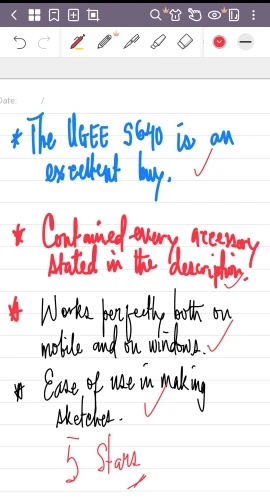 Date: /
* The UGEE S640 is an
excellent buy.
* Contained every accessory
stated in the description.
* Works perfectly both on
mobile and on windows.
* Ease of use in making
sketches.
5 Stars